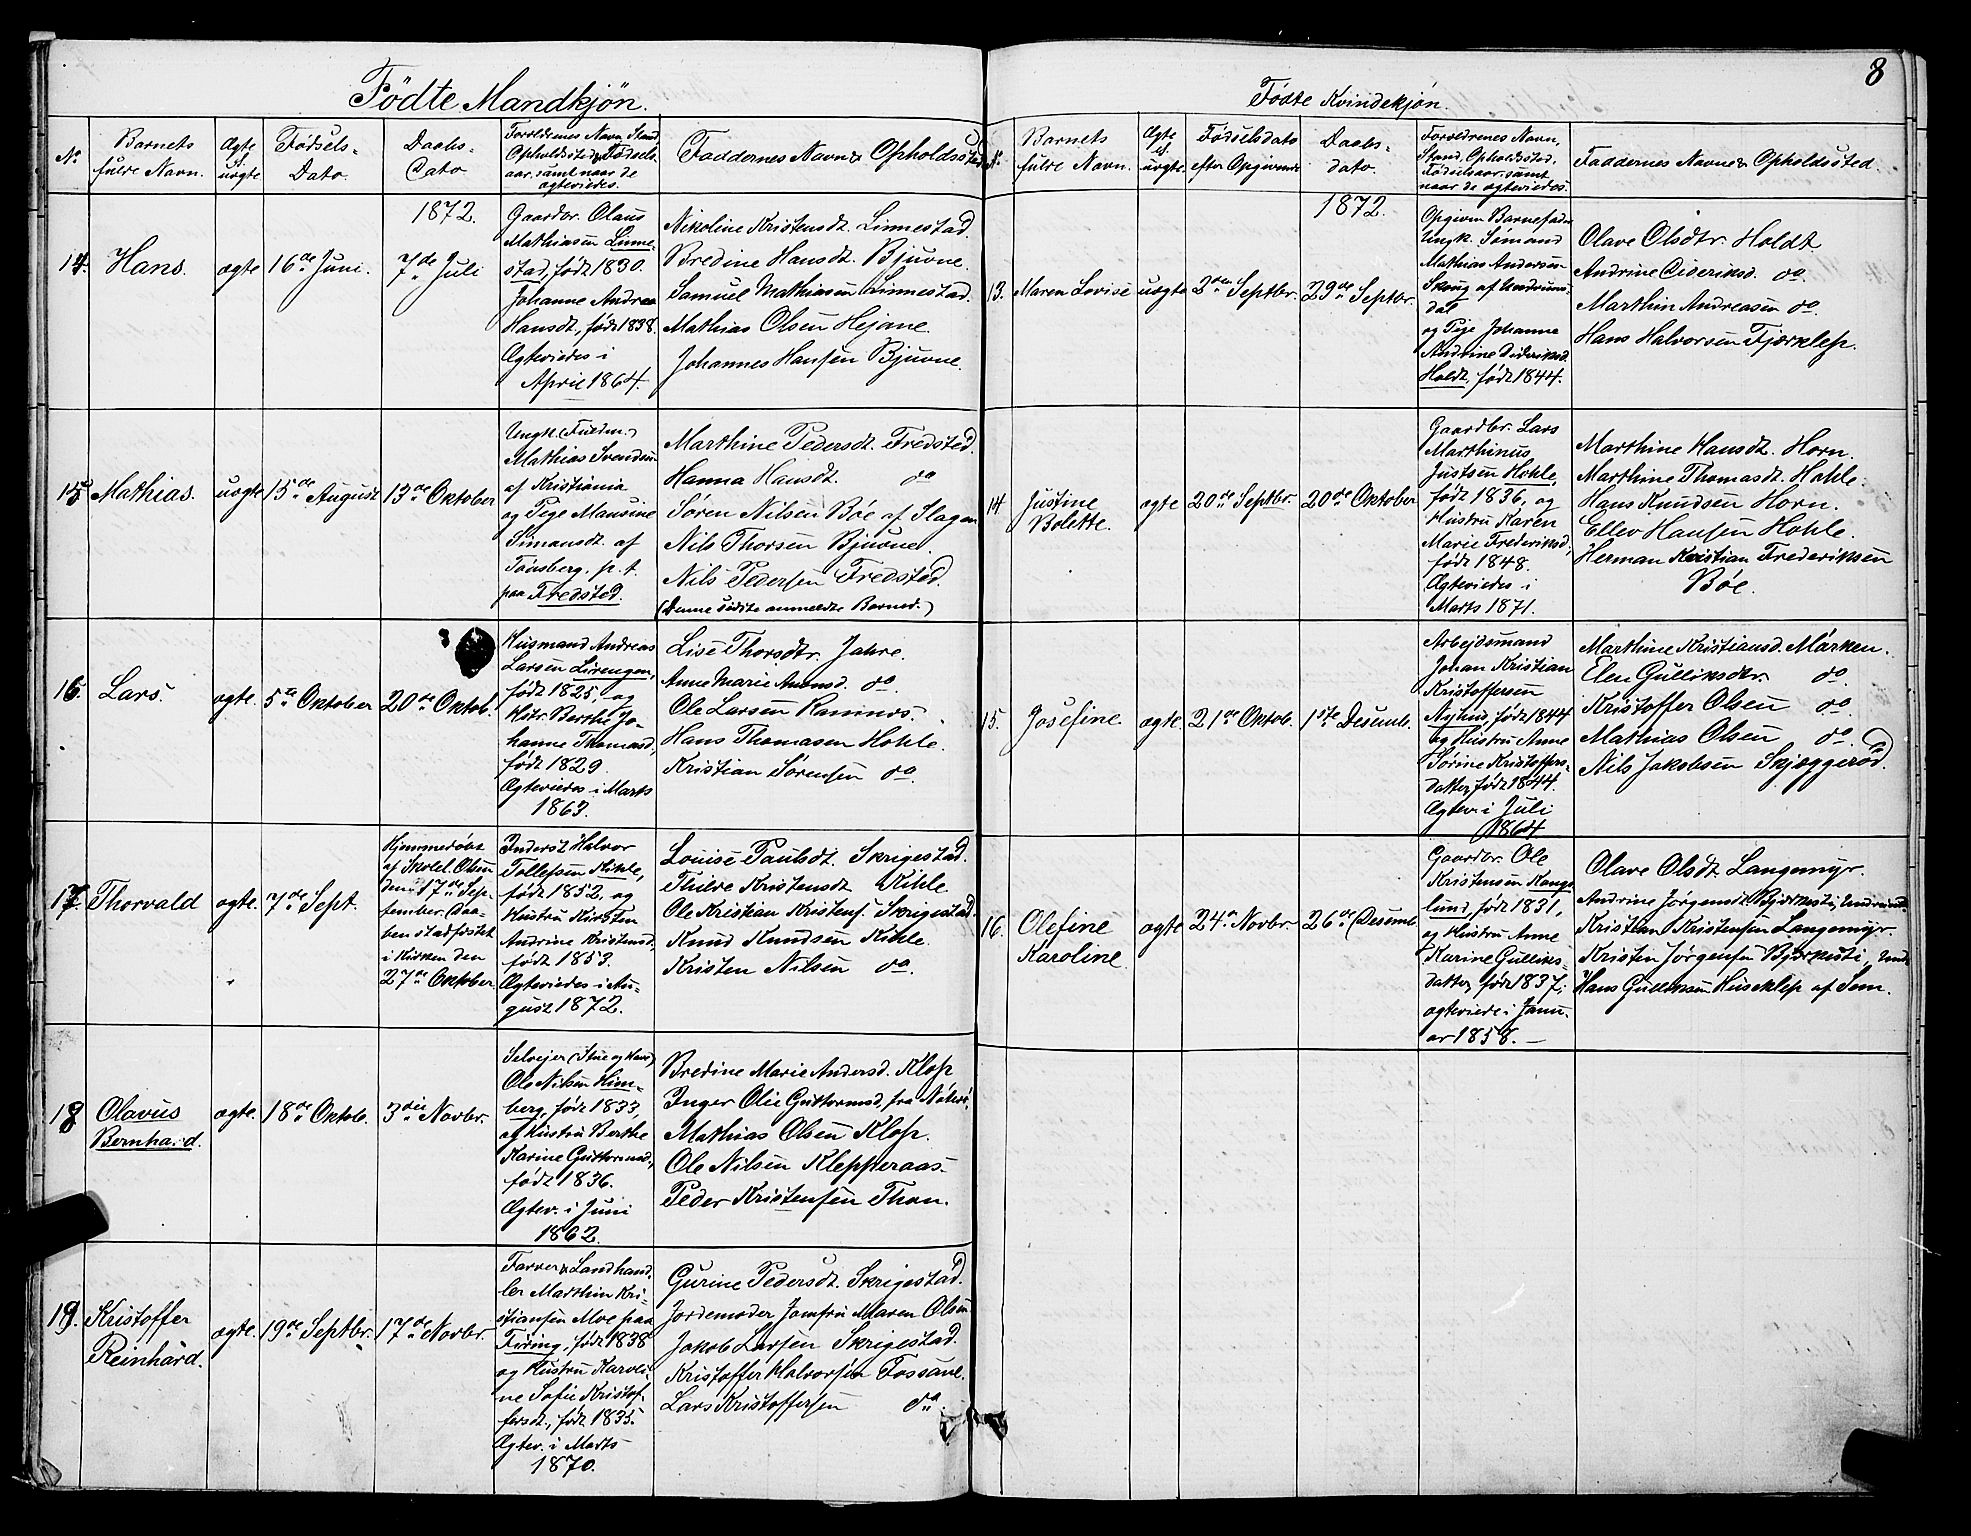 8
Födte Mandkjön.
No
Barnets
fulde Navn.
Ægte
el.
uægte
Fødsels-
Dato.
Daabs-
Dato
Forældrenes Navn, Stand
Opholdssted & Fødsels-
aar, samt naar de
ægteviedes.
Faddernes Navn & Opholdssted
14.
Hans.
ægte
16de Juni.
1872.
7de Juli
Gaardbr. Olaus
Mathiasen Linne-
stad, født 1830.
Johanne Andrea
Hansdt., født 1838.
Ægteviedes i
April 1864.
Nikoline Kristensdt. Linnestad.
Bredine Hansdt. Bjuvne.
Samuel Mathiasen Linnestad.
Mathias Olsen Hejane.
Johannes Hansen Bjuvne.
15
Mathias.
uægte
15de August
13de Oktober
Ungk. (Fuldm.)
Mathias Svendsen
af Kristiania
og Pige Mausine
Simansdt. af
Tönsberg. p. t.
paa Fredsted.
Marthine Pedersdt. Fredsted.
Hanna Hansdt. do
Søren Nilsen Böe af Slagen
Nils Thorsen Bjuvne.
Nils Pedersen Fredsted.
(Denne sidste anmeldte Barned.)
16.
Lars.
ægte.
5te Oktober
20de Oktob.
Husmand Andreas
Larsen Lirengen,
født 1825, og
Hstr. Berthe Jo-
hanne Thomasd,
født 1829.
Ægteviedes i Marts
1863.
Lise Thorsdtr. Jahre.
Anne Marie Amundsd. do
Ole Larsen Ramnes.
Hans Thomasen Hohle.
Kristian Sørensen do.
17.
Thorvald
ægte.
7de Sept.
Hjemmedøbt
af Skolel. Olsen
den 17de Sep-
tember. Daa-
ben stadfæstet
i Kirken den
27de Oktober.
Inderst Halvor
Tollefsen Kihle,
født 1852, og
Hustru Kirsten
Andrine Kristensd.
født 1853.
Ægteviedes i Au-
gust 1872.
Louise Paulsdt. Skrigestad.
Thilde Kristensdt Kihle
Ole Kristian Kristens. Skrigestad.
Knud Knudsen Kihle.
Kristen Nilsen do.
18
Olavus
Bernhard.
ægte.
18de Oktob.
3die Novbr.
Selvejer (Stue og Have)
Ole Nilsen Him-
berg, født 1833,
og Hustru Berthe
Karine Guttormsd,
født 1836.
Ægtev. i Juni
1862.
Bredine Marie Andersd. Klop
Inger Olie Guttormsd, fra Nöterö,
Mathias Olsen Klop.
Ole Nilsen Klepperaas-
Peder Kristensen Thon.
19.
Kristoffer
Reinhard.
ægte.
19de Septbr.
17de Novbr.
Farver & Landhand-
ler Marthin Kri-
stiansen Moe paa
Firing, født 1838
og Hustru Karoli-
ne Sofie Kristof-
fersdt., født 1835.
Ægtev. i Marts
1870.
Gurine Pedersdt. Skrigestad.
Jordemoder Jomfru Maren Olsen
Jakob Larsen Skrigestad.
Kristoffer Halvorsen Fossane.
Lars Kristoffersen do.
Födte Kvindekjön.
Barnets
fulde Navn.
Ægte
el.
uægte.
Fødselsdato
efter Opgivende
Daabs-
dato.
Forældrenes Navn,
Stand, Opholdssted,
Fødselsaar, samt
naar de ægteviedes.
Faddernes Navne & Opholdssted.
13.
Maren Lovise
uægte
2den Septbr.
1872.
29de Septbr.
Opgiven Barnefader
Ungk. Sømand
Mathias Anderses-
Skoug af Undrums-
dal
og Pige Johanne
Andrine Dideriksd.
Holdt, født 1844.
Olave Olsdtr. Holdt
Andrine Dideriksd. do
Marthin Andreasen do.
Hans Halvorsen Fjærklep.
14
Justine
Bolette.
ægte
20de Septbr.
20de Oktober
Gaardbr. Lars
Marthinus
Justsen Hohle,
født 1836, og
Hustru Karen
Marie Frederiksd,
født 1848.
Ægteviedes i
Marts 1871.
Marthine Hansdt. Horn.
Marthine Thomasdt. Hohle.
Hans Knudsen Horn.
Ellev Hansen Hohle.
Herman Kristian Frederiksen
Böe.
15.
Josefine.
ægte.
21de Oktob.
1ste Desemb.
Arbejdsmand
Johan Kristian
Kristoffersen
Nyhus, født 1844
og Hustru Anne
Sørine Kristoffers-
datter, født 1844.
Ægtev. i Juli
1864
Marthine Kristiansd. Mörken.
Elen Gulliksdtr. do.
Kristoffer Olsen do.
Mathias Olsen do.
Nils Jakobsen Skjæggeröd.
16.
Olefine
Karoline.
ægte
24. Novbr.
26de Desemb.
Gaardbr. Ole
Kristensen Haugs-
lund, født 1831,
og Hustru Anne
Karine Gulliks-
datter, født 1837,
ægteviede i Janu-
ar 1858. —
Olave Olsdt Langemyr.
Andrine Jørgensdt. Bjørkesti, Undrumsd.
Kristian Kristensen Langemyr.
Kristen Jørgensen Bjørkesti, Undr
Hans Gulliksen Huseklep af Sem.